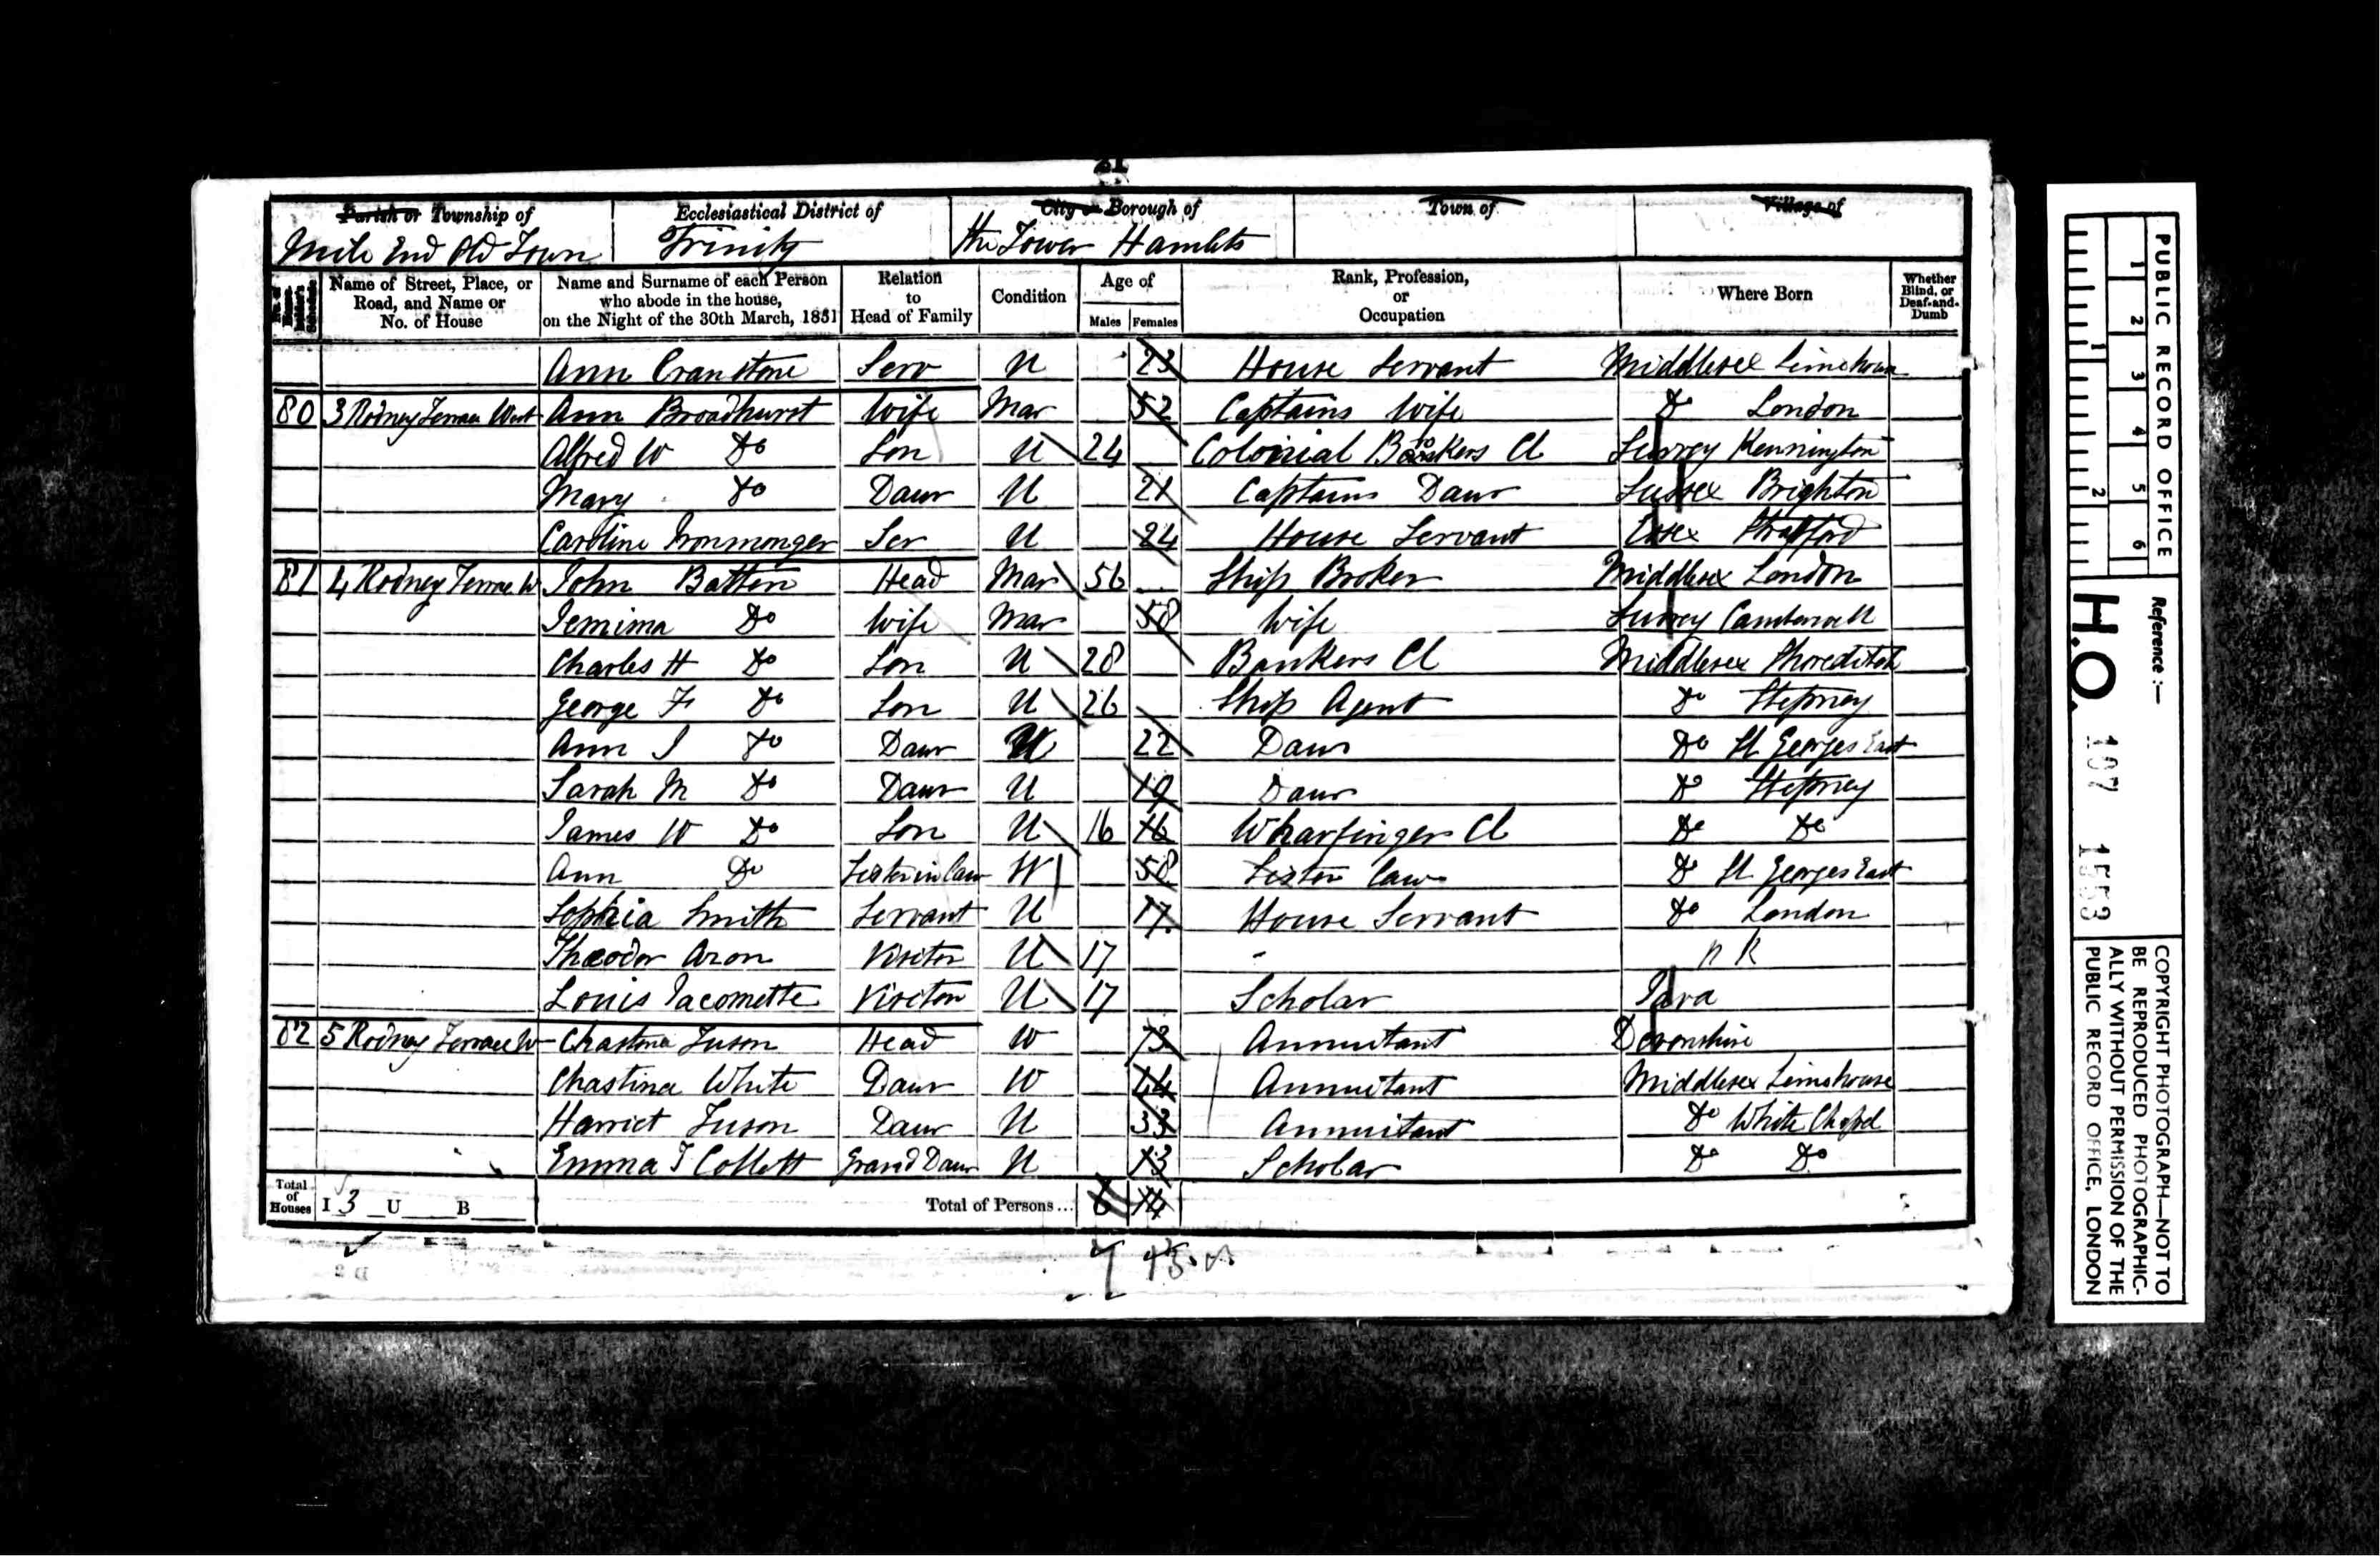 21
Parish or Township of Ecclesiastical District of City or Borough of Town of Village of
Mile End Old Town Trinity the Tower Hamlets
Name of Street, Place, or Road, and Name or No. of House
Name and Surname of each Person who abode in the house, on the Night of the 30th March, 1851
Relation to Head of Family
Condition
Age of
Males Females
Rank, Profession, or Occupation
Where Born
Whether Blind, or Deaf-and-Dumb
Ann Cranstone Serv U 23 House Servant Middlesex Limehouse
80 3 Rodney Terrace West Ann Broadhurst Wife Mar 52 Captains Wife Do London
Alfred W Do Son U 24 Colonial Cl Surrey Kennington
Mary Do Daur U 21 Captains Daur Sussex Brighton
Caroline Ironmonger Ser U 24 House Servant Essex Stratford
81 4 Rodney Terrace W John Batten Head Mar 56 Ship Broker Middlesex London
Jemima Do Wife Mar 58 Wife Surrey Camberwell
Charles H Do Son U 28 Bankers Cl Middlesex Shoreditch
George F Do Son U 26 Ship Agent Do Stepney
Ann J Do Daur U 22 Daur Do St Georges East
Sarah M Do Daur U 19 Daur Do Stepney
James W Do Son U 16 16 Wharfingers Cl Do Do
Ann Do Sister in law W 58 Sister law Do St Georges East
Sophia Smith Servant U 17 House Servant Do London
Theodor Aron Visitor U 17 - N K
Louis Jacomette Visitor U 17 Scholar Java
82 5 Rodney Terrace W Chastina Tuson Head W 73 Annuitant Devonshire
Chastina White Daur W 44 Annuitant Middlesex Limehouse
Harriet Tuson Daur U 33 Annuitant Do White Chapel
Emma T Collett Grand Daur U 13 Scholar Do Do
Total of Houses I 3 U B Total of Persons... 6 14
7 13
PUBLIC RECORD OFFICE
1 2 3 4 5 6
1 2
Reference :—
H.O. 107 1553
COPYRIGHT PHOTOGRAPH—NOT TO
BE REPRODUCED PHOTOGRAPHIC-
ALLY WITHOUT PERMISSION OF THE
PUBLIC RECORD OFFICE, LONDON